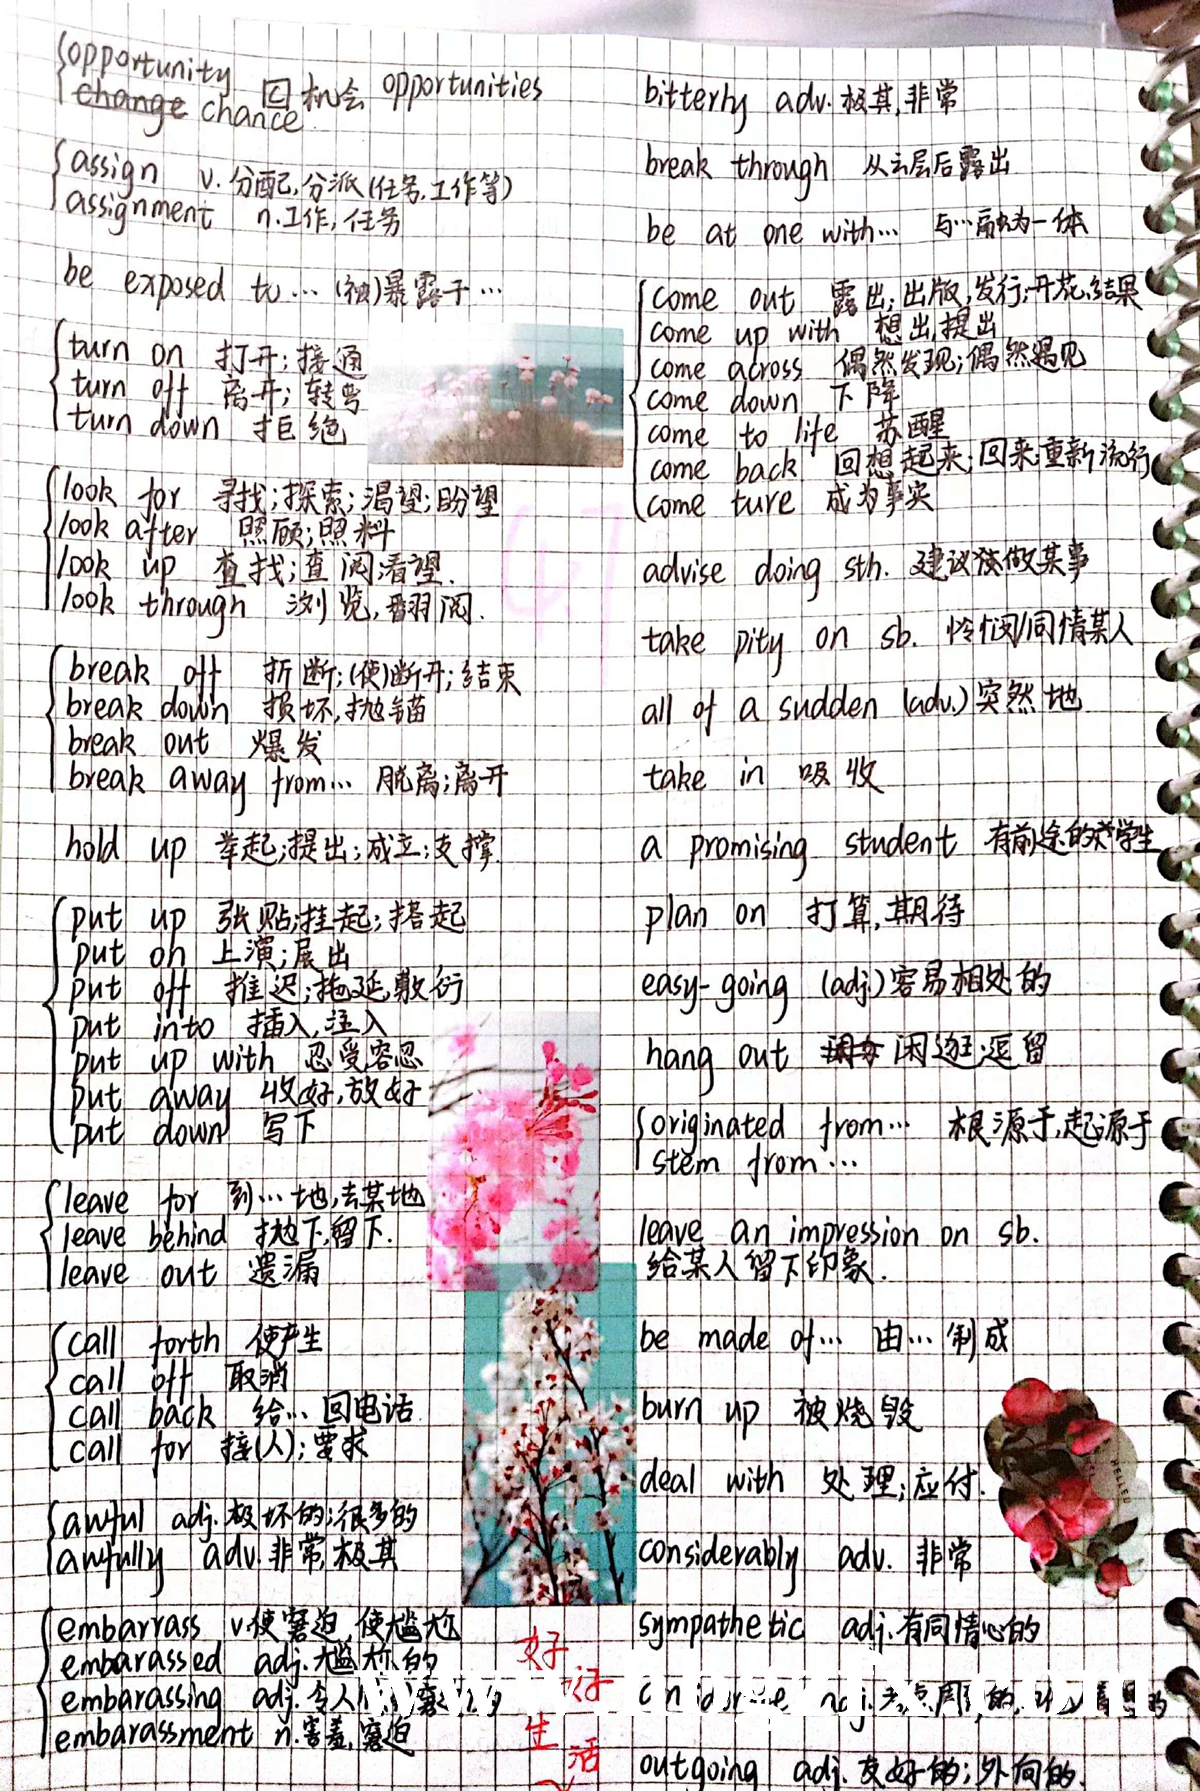 opportunity
change chance 机会 opportunities
assign v. 分配,分派(任务,工作等)
assignment n.工作,任务
be exposed to … (被)暴露于…
turn on 打开;接通
turn off 离开;转弯
turn down 拒绝
look for 寻找;探索;渴望;盼望
look after 照顾;照料
look up 查找;查阅;看望.
look through 浏览,翻阅.
break off 折断;(使)断开;结束
break down 损坏,抛锚
break out 爆发
break away from… 脱离;离开
hold up 举起;提出;成立;支撑.
put up 张贴;挂起;搭起
put on 上演;展出
put off 推迟;拖延,敷衍
put into 插入,注入
put up with 忍受容忍
put away 收好,放好
put down 写下
leave for 到…地,去某地
leave behind 抛下,留下.
leave out 遗漏
call forth 使产生
call off 取消
call back 给…回电话
call for 接(人);要求
awful adj.极坏的;很多的
awfully adv.非常,极其
embarrass v.使窘迫,使尴尬
embarassed adj.尴尬的
embarassing adj.令人
embarassment n.害羞,窘迫
好好
生活
bitterly adv.极其,非常
break through 从云层后露出
be at one with… 与…融为一体
come out 露出;出版,发行;开花,结果
come up with 想出,提出
come across 偶然发现;偶然遇见
come down 下降
come to life 苏醒
come back 回想起来;回来;重新流行
come ture 成为事实
advise doing sth. 建议做某事
take pity on sb. 怜悯/同情某人
all of a sudden (adv.)突然地
take in 吸收
a promising student 有前途的学生
plan on 打算,期待
easy-going (adj)容易相处的
hang out 闲逛;逗留
originated from… 根源于,起源于
stem from…
leave an impression on sb.
给某人留下印象.
be made of… 由…制成
burn up 被烧毁
deal with 处理;应付.
considerably adv. 非常
sympathetic adj.有同情心的
outgoing adj.友好的;外向的
HELLEU